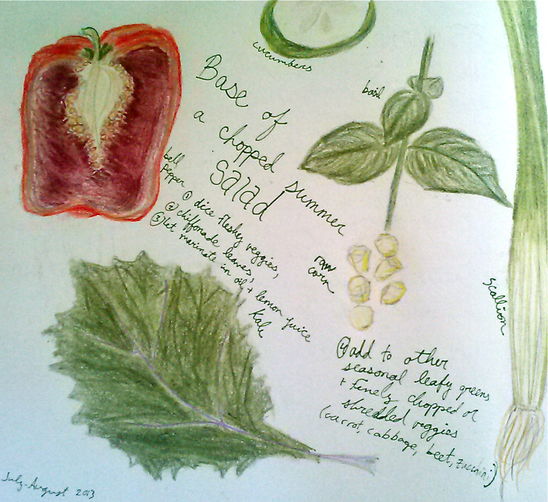 cucumbers
basil
Base of
a chopped summer
salad
bell
pepper
① dice fleshy veggies,
② chiffonade leaves,
③ let marinate in oil + lemon juice
kale
raw
corn
scallion
④ add to other
seasonal leafy greens
+ finely chopped or
shredded veggies
(carrot, cabbage, beet, zuccini)
July-August 2013